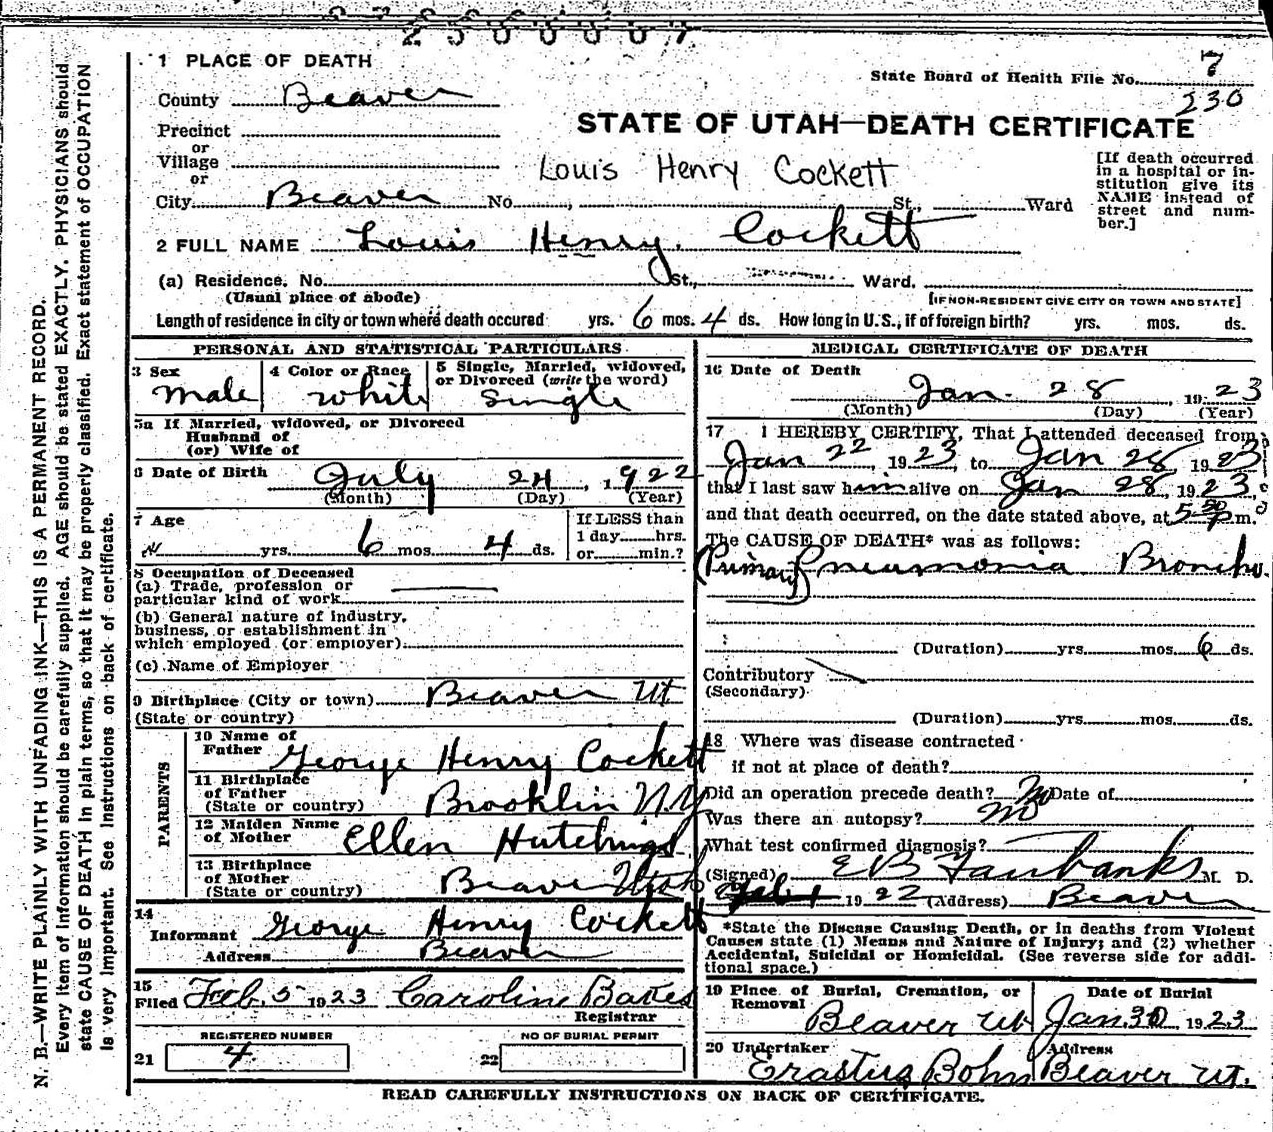 2300007
1 PLACE OF DEATH
State Board of Health File No. 7
230
County Beaver
STATE OF UTAH—DEATH CERTIFICATE
Precinct
or
Village
or
Louis Henry Cockett
[If death occurred in a hospital or institution give its NAME instead of street and number.]
City Beaver No. St., Ward
2 FULL NAME Louis Henry Cockett
(a) Residence. No. St., Ward.
(Usual place of abode)
[IF NON-RESIDENT GIVE CITY OR TOWN AND STATE]
Length of residence in city or town where death occured yrs. 6 mos. 4 ds. How long in U.S., if of foreign birth? yrs. mos. ds.
PERSONAL AND STATISTICAL PARTICULARS
3 Sex
male
4 Color or Race
white
5 Single, Married, widowed, or Divorced (write the word)
single
5a If Married, widowed, or Divorced
Husband of
(or) Wife of
6 Date of Birth July 24, 1922
(Month) (Day) (Year)
7 Age
yrs. 6 mos. 4 ds.
If LESS than
1 day hrs.
or min.?
8 Occupation of Deceased
(a) Trade, profession or
particular kind of work
(b) General nature of industry,
business, or establishment in
which employed (or employer)
(c) Name of Employer
9 Birthplace (City or town) Beaver Ut
(State or country)
PARENTS
10 Name of
Father George Henry Cockett
11 Birthplace
of Father
(State or country) Brooklin N.Y.
12 Maiden Name
of Mother Ellen Hutchings
13 Birthplace
of Mother
(State or country) Beaver Utah
14
Informant George Henry Cockett
Address Beaver
15
Filed Feb. 5 1923 Caroline Bakes
Registrar
REGISTERED NUMBER
21 4
NO OF BURIAL PERMIT
22
MEDICAL CERTIFICATE OF DEATH
16 Date of Death
Jan. 28, 1923
(Month) (Day) (Year)
17 I HEREBY CERTIFY, That I attended deceased from
Jan 22, 1923, to Jan 28, 1923
that I last saw him alive on Jan 28, 1923
and that death occurred, on the date stated above, at 5 30 p m.
The CAUSE OF DEATH* was as follows:
(Primary) Pneumonia Broncho.
(Duration) yrs. mos. 6 ds.
Contributory
(Secondary)
(Duration) yrs. mos. ds.
18 Where was disease contracted
if not at place of death?
Did an operation precede death? No Date of
Was there an autopsy? no
What test confirmed diagnosis?
(Signed) E B Fairbanks M. D.
Feb 1 1922 (Address) Beaver
*State the Disease Causing Death, or in deaths from Violent
Causes state (1) Means and Nature of Injury; and (2) whether
Accidental, Suicidal or Homicidal. (See reverse side for addi-
tional space.)
19 Place of Burial, Cremation, or
Removal
Beaver Ut
Date of Burial
Jan. 30 1923
20 Undertaker
Erastus Bohn
Address
Beaver Ut.
READ CAREFULLY INSTRUCTIONS ON BACK OF CERTIFICATE.
N. B.—WRITE PLAINLY WITH UNFADING INK—THIS IS A PERMANENT RECORD.
Every item of information should be carefully supplied. AGE should be stated EXACTLY. PHYSICIANS should
state CAUSE OF DEATH in plain terms, so that it may be properly classified. Exact statement of OCCUPATION
is very important. See Instructions on back of certificate.